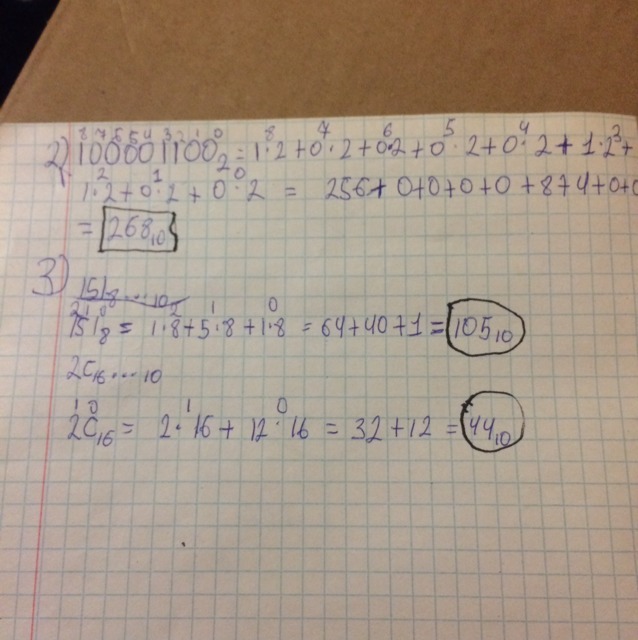 8 7 6 5 4 3 2 1 0
2) 100001100₂ = 1·2⁸+0·2⁷+0·2⁶+0·2⁵+0·2⁴+1·2³+
1·2²+0·2¹+0·2⁰ = 256+0+0+0+0+8+4+0+0
= 268₁₀
3) 151₈...10
2 1 0
151₈ = 1·8²+5·8¹+1·8⁰ = 64+40+1 = 105₁₀
2C₁₆...10
1 0
2C₁₆ = 2·16¹+12·16⁰ = 32+12 = 44₁₀